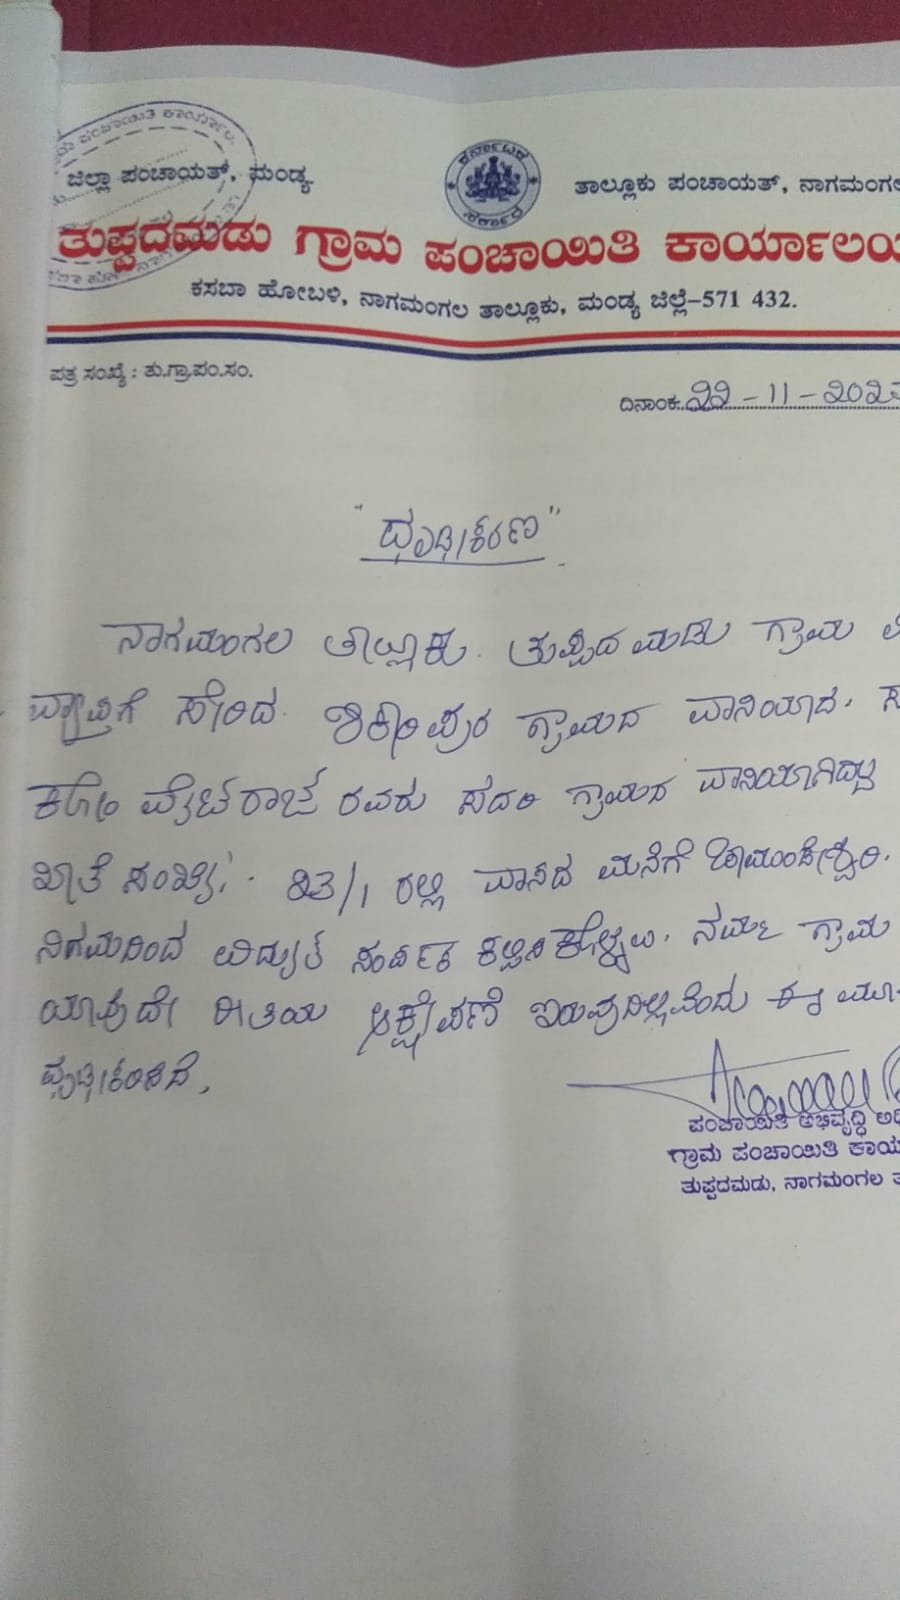 ಜಿಲ್ಲಾ ಪಂಚಾಯತ್, ಮಂಡ್ಯ
ಕರ್ನಾಟಕ ಸರ್ಕಾರ
ತಾಲ್ಲೂಕು ಪಂಚಾಯತ್, ನಾಗಮಂಗಲ
ತುಪ್ಪದಮಡು ಗ್ರಾಮ ಪಂಚಾಯಿತಿ ಕಾರ್ಯಾಲಯ
ಕಸಬಾ ಹೋಬಳಿ, ನಾಗಮಂಗಲ ತಾಲ್ಲೂಕು, ಮಂಡ್ಯ ಜಿಲ್ಲೆ-571 432.
ಪತ್ರ ಸಂಖ್ಯೆ : ತು.ಗ್ರಾ.ಪಂ.ಸಂ.
ದಿನಾಂಕ 22-11-202
"ಧೃಡೀಕರಣ"
ನಾಗಮಂಗಲ ತಾಲ್ಲೂಕು. ತುಪ್ಪದಮಡು ಗ್ರಾಮ
ವ್ಯಾಪ್ತಿಗೆ ಸೇರಿದ. ಶಿಕಾರಿಪುರ ಗ್ರಾಮದ ವಾಸಿಯಾದ.
ರವರು ಸದರಿ ಗ್ರಾಮದ ವಾಸಿಯಾಗಿದ್ದು
ಖಾತೆ ಸಂಖ್ಯೆ: ರಲ್ಲಿ ವಾಸದ ಮನೆಗೆ ಚಾಮುಂಡೇಶ್ವರಿ.
ನಿಗಮದಿಂದ ವಿದ್ಯುತ್ ಸಂಪರ್ಕ ಕಲ್ಪಿಸಿಕೊಳ್ಳಲು. ನಮ್ಮ ಗ್ರಾಮ
ಯಾವುದೇ ರೀತಿಯ ಆಕ್ಷೇಪಣೆ ಇರುವುದಿಲ್ಲವೆಂದು ಈ ಮೂ
ಧೃಡೀಕರಿಸಿದೆ,
ಪಂಚಾಯಿತಿ ಅಭಿವೃದ್ಧಿ
ಗ್ರಾಮ ಪಂಚಾಯಿತಿ ಕಾರ್ಯ
ತುಪ್ಪದಮಡು, ನಾಗಮಂಗಲ